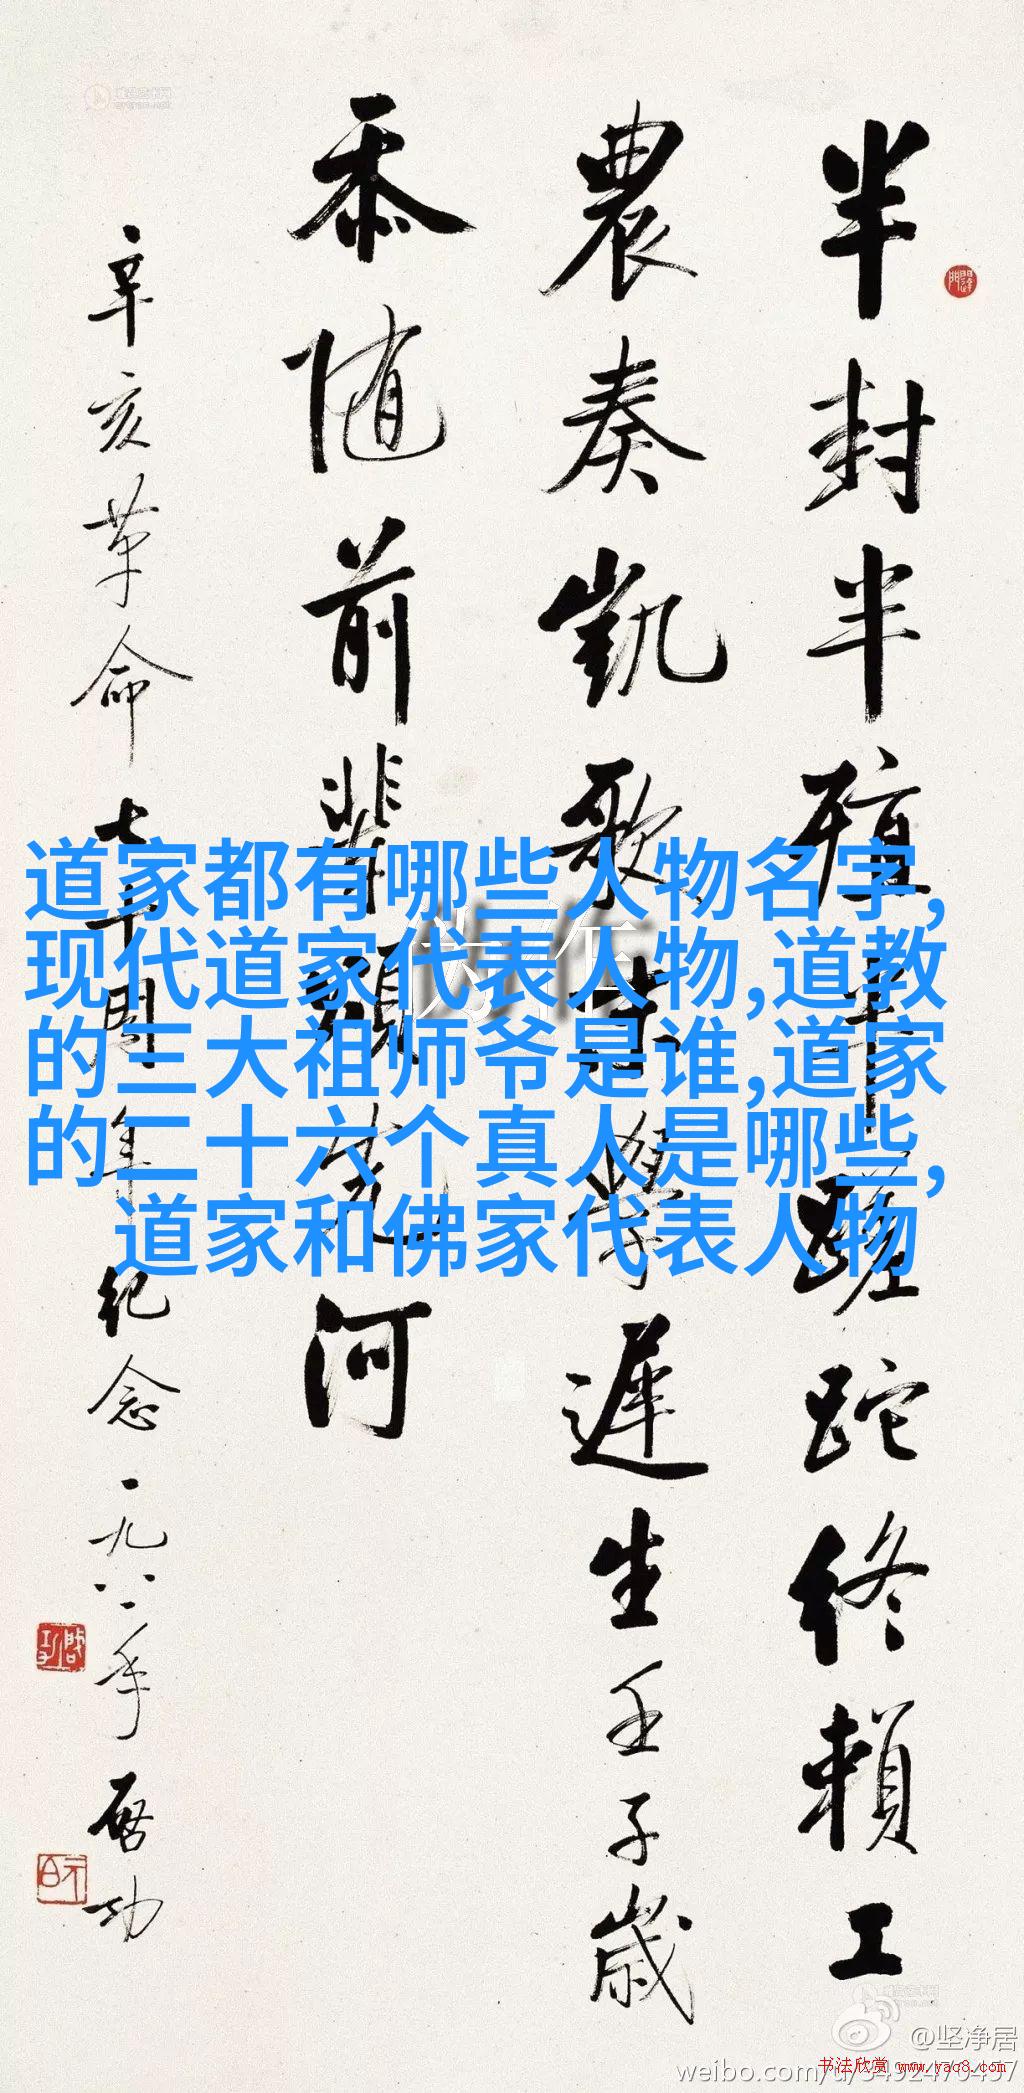 半封半殖半蹉跎終賴工
農奏凱歌
遲生壬子歲
忝随前輩頌
河
辛亥革命七十周年纪念一九八一年启功
启功
道家都有哪些人物名字,
现代道家代表人物,道教
的三大祖师爷是谁,道家
的二十六个真人是哪些,
道家和佛家代表人物
@坚净居
书法欣赏 www.yac8.com
weibo.com/u/5492470457